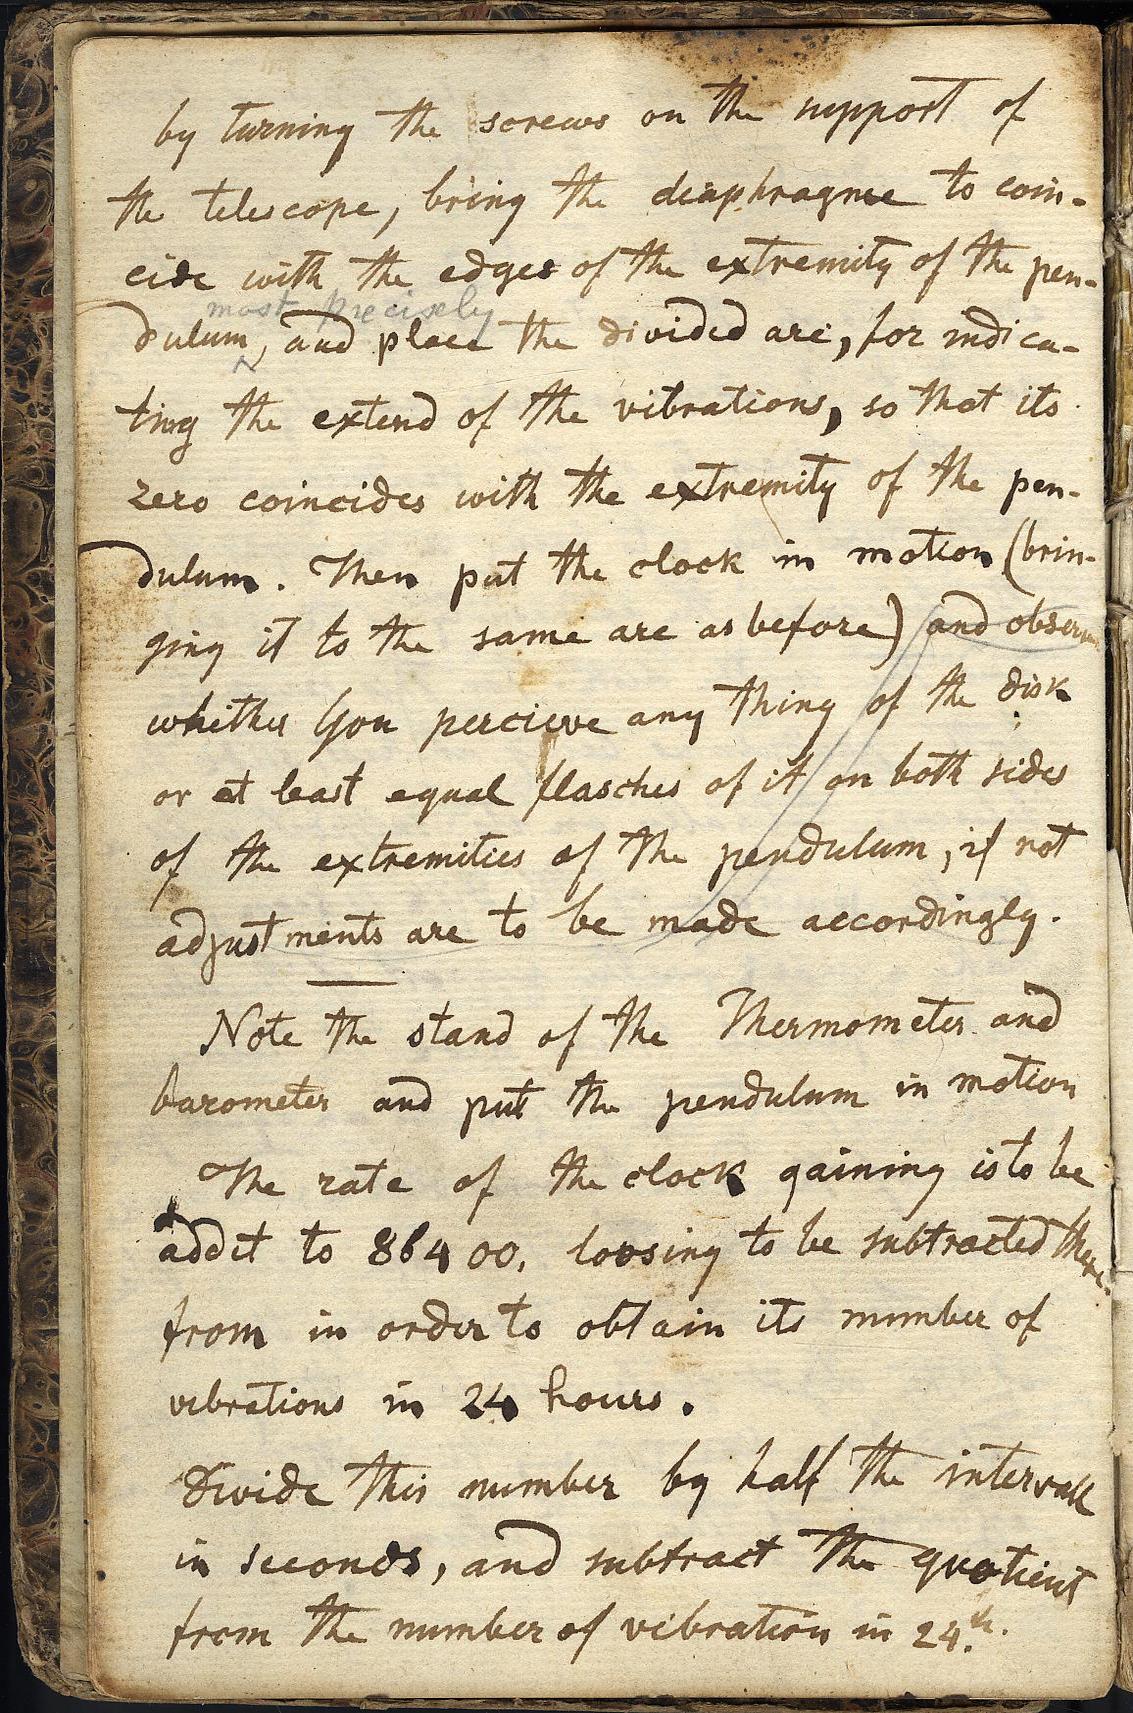 by turning the screws on the support of
the telescope, bring the diaphragme to coin-
cide with the edges of the extremity of the pen-
most precisely
dulum, and place the divided arc, for indica-
ting the extend of the vibrations, so that its
zero coincides with the extremity of the pen-
dulum. Then put the clock in motion (brin-
ging it to the same arc as before) and observe
whether you percieve any thing of the disk
or at least equal flasches of it on both sides
of the extremities of the pendulum, if not
adjustments are to be made accordingly.
Note the stand of the Thermometer and
barometer and put the pendulum in motion
The rate of the clock gaining is to be
addet to 86400, loosing to be subtracted there-
from in order to obtain its number of
vibrations in 24 hours.
Divide this number by half the intervall
in seconds, and subtract the quotient
from the number of vibration in 24.h.